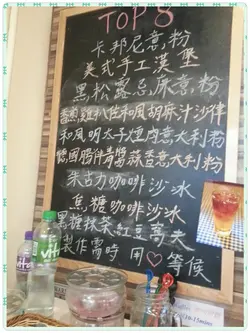 TOP 8
卡邦尼意粉
美式手工漢堡
黑松露忌廉意粉
和風胡麻汁沙律
和風明太子煙肉意大利粉
德國腸伴青醬蒜香意大利粉
朱古力咖啡沙冰
焦糖咖啡沙冰
黑糖抹茶紅豆窩夫
製作需時 用♡等候
vita